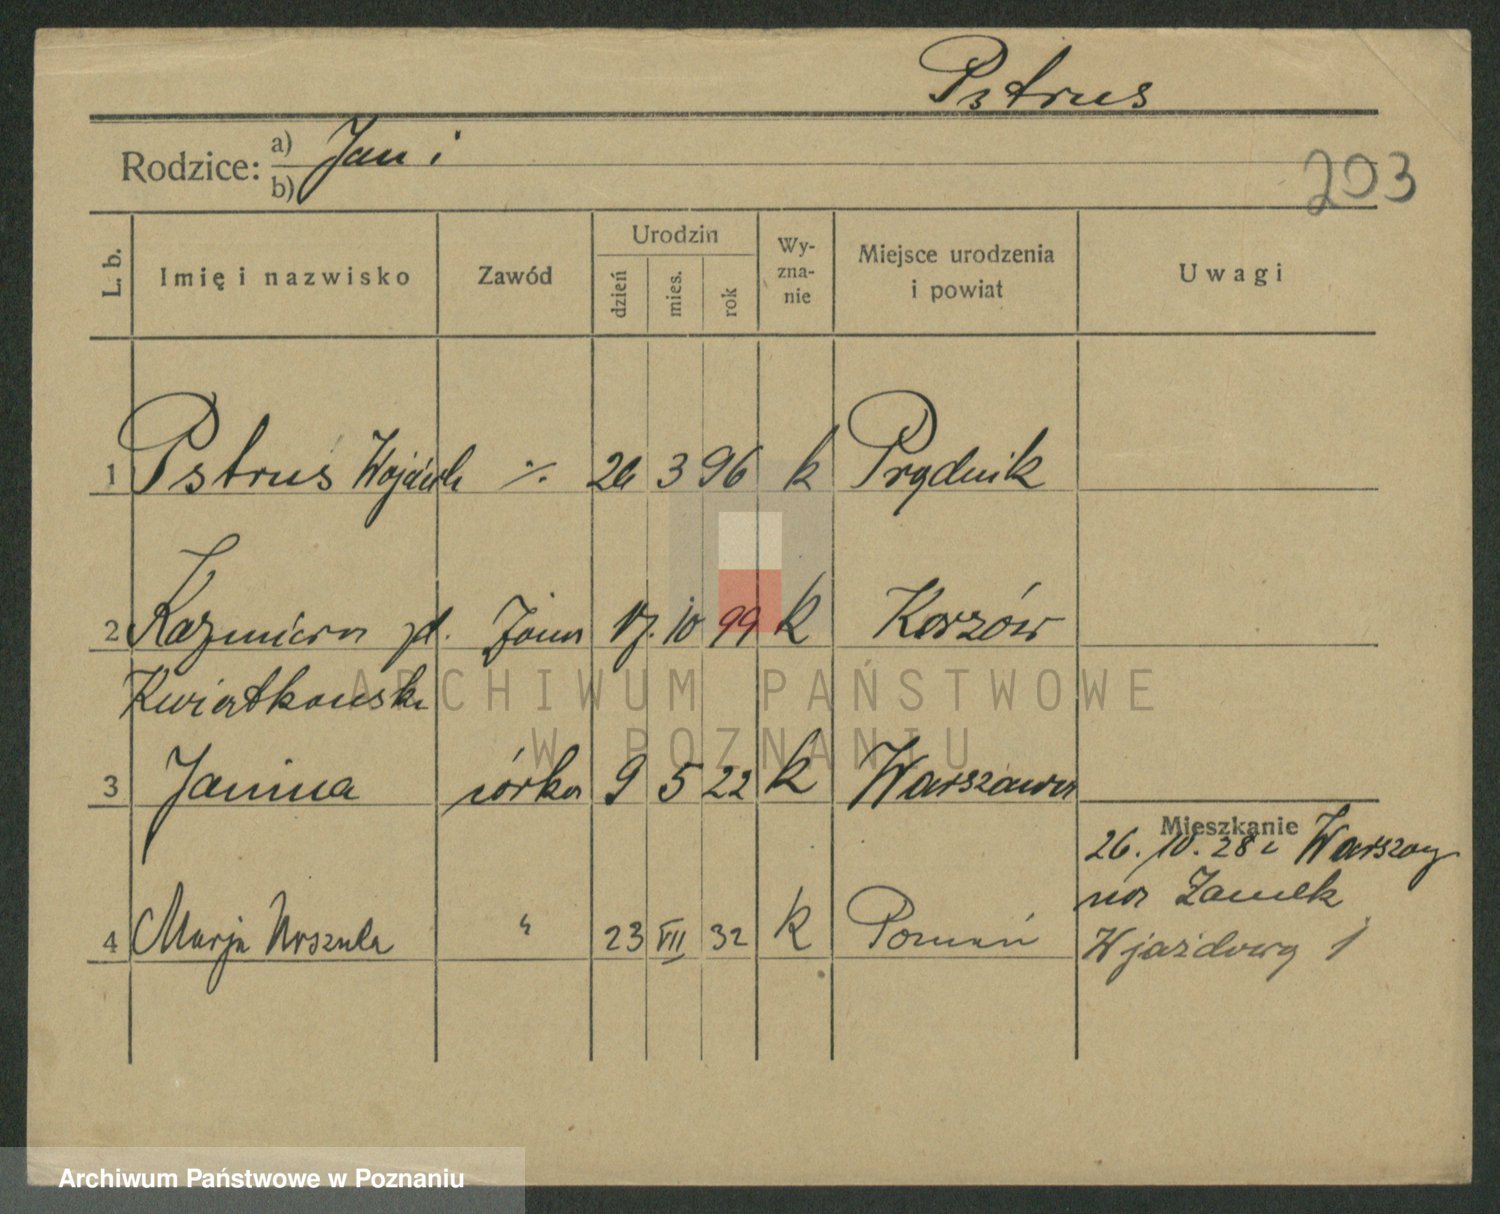 Pstrus
Rodzice: a) Jan i
b)
203
L. b. Imię i nazwisko Zawód Urodzin dzień mies. rok Wy-zna-nie Miejsce urodzenia i powiat Uwagi
1 Pstruś Wojciech ./. 26 3 96 k Prądnik
2 Kazmiera zd. żona 17. 10 99 k Korzów
Kwiatkowska
3 Janina córka 9 5 22 k Warszawa
Mieszkanie
26. 10. 28 z Warszawy
na Zamek
4 Marja Urszula " 23 VII 32 k Poznań
Wjazdowa 1
ARCHIWUM PAŃSTWOWE
W POZNANIU
Archiwum Państwowe w Poznaniu